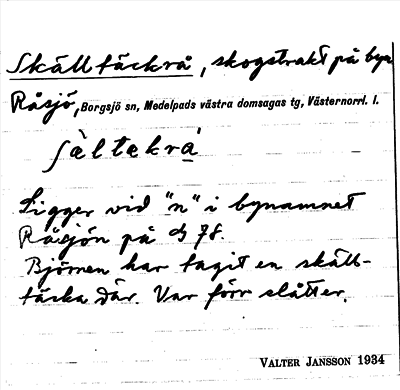 Skälltäckrå, skogstrakt på byn
Råsjö, Borgsjö sn, Medelpads västra domsagas tg, Västernorrl. l.
Ligger vid "n" i bynamnet
Råsjön på 78.
Björnen har tagit en skäll-
täcka där. Var förr slåtter.
VALTER JANSSON 1934